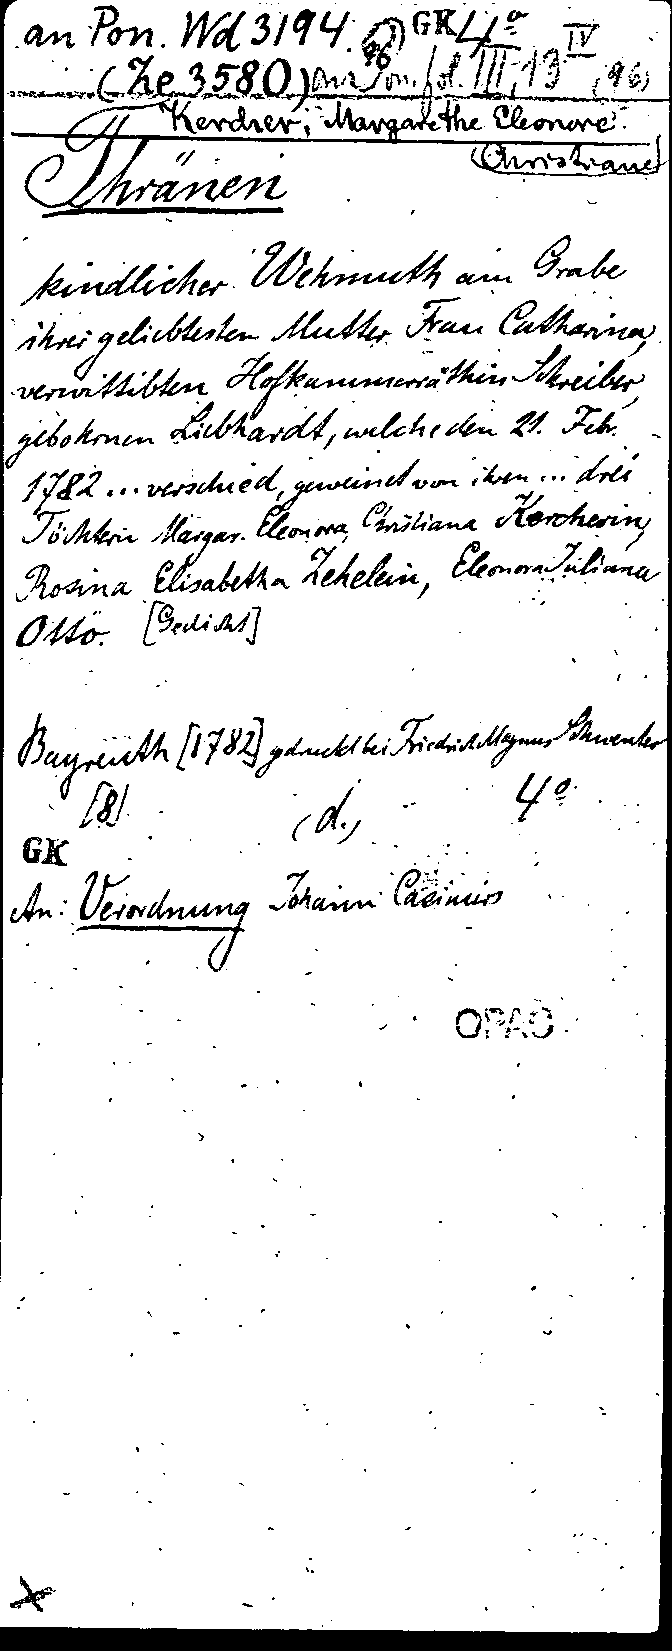 an Pon. Wd 3194. (96) GK 4º
(Ze 3580) An Pon. fol. III, 13 IV, (96)
Kercher, Margarethe Eleonore
(Christiane)
Thränen
kindlicher Wehmuth am Grabe
ihrer geliebtesten Mutter Frau Catharina,
verwittibten Hofkammerräthin Schreiber,
gebohrnen Liebhardt, welche den 21. Febr.
1782 ... verschied, geweinet von ihren ... drei
Töchtern Margar. Eleonora, Christiana Kercherin,
Rosina Elisabetha Zehelein, Eleonora Juliana
Otto. [Gedicht]
Bayreuth [1782] gedruckt bei Friedrich Magnus Schwenter
[8] (d.) 4º
GK
An: Verordnung Johann Casimirs
OPAC